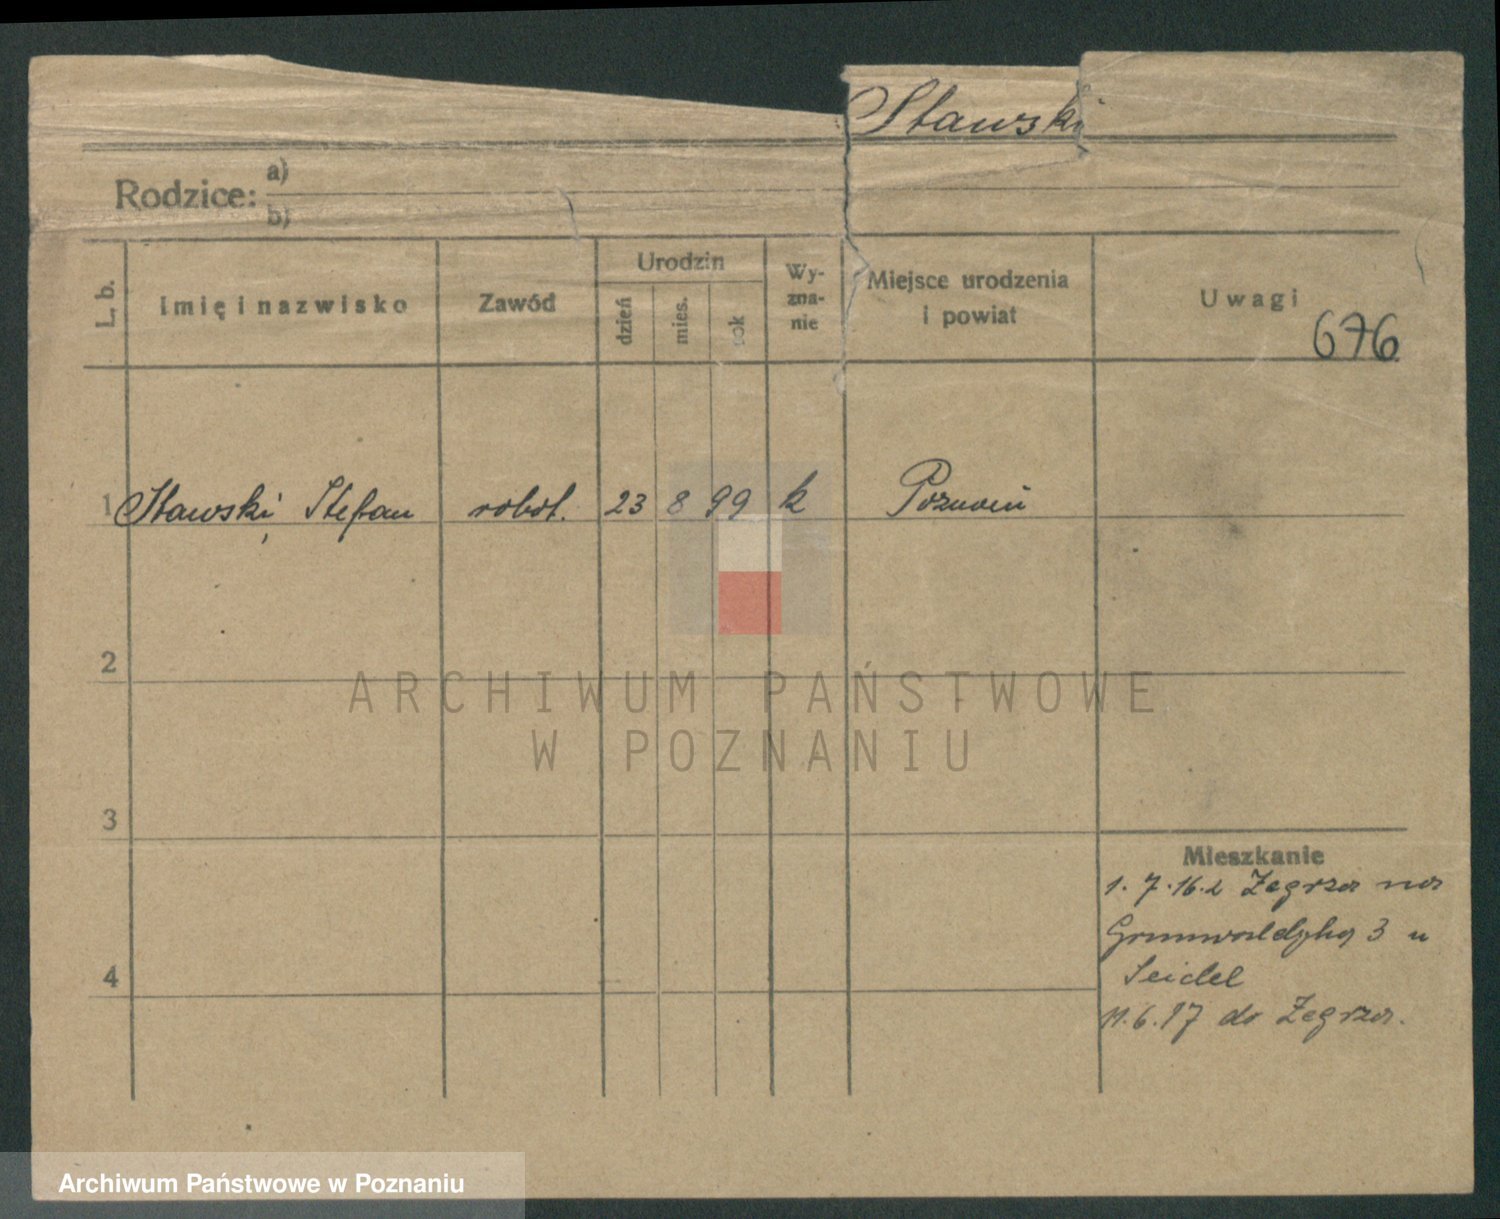 Stawski
Rodzice: a)
b)
L. b.
Imię i nazwisko
Zawód
Urodzin
dzień
mies.
rok
Wy-
zna-
nie
Miejsce urodzenia
i powiat
Uwagi
676
1 Stawski, Stefan robot. 23 8 99 k Poznań
2
ARCHIWUM PAŃSTWOWE
W POZNANIU
3
4
Mieszkanie
1. 7. 16. z Zegrza na
Grunwaldzką 3 u
Seidel
11. 6. 17 do Zegrza.
Archiwum Państwowe w Poznaniu